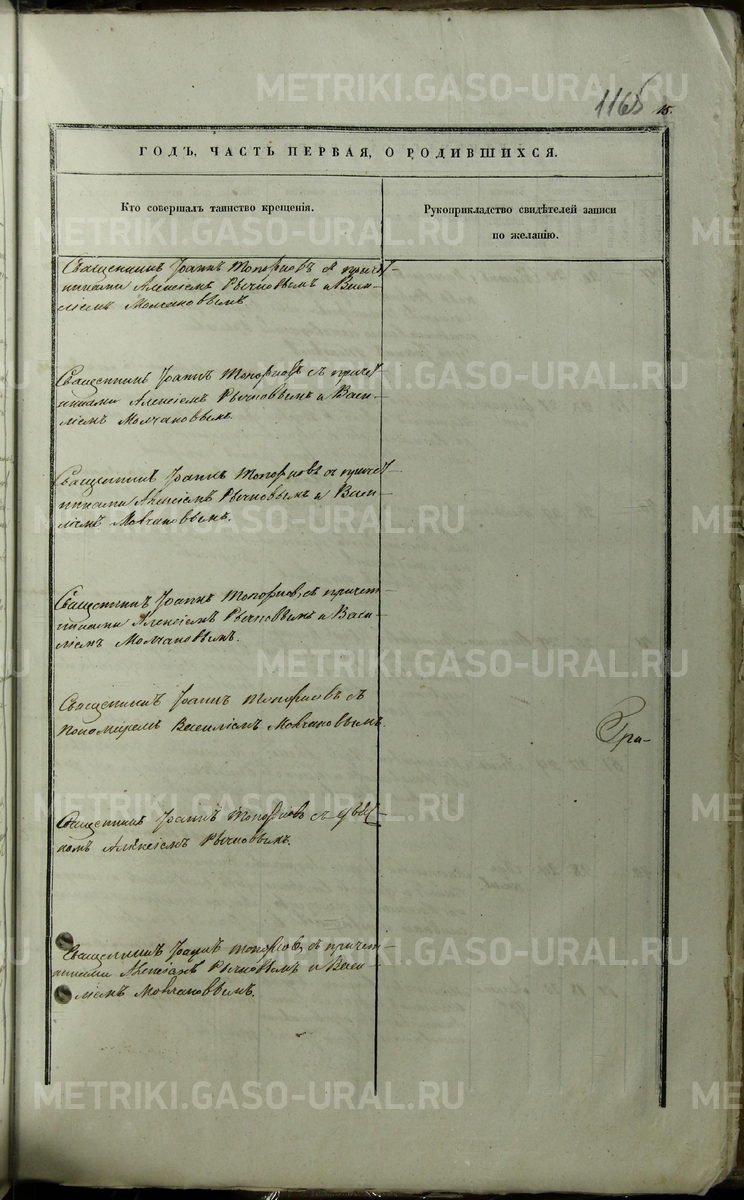 METRIKI.GASO-URAL.RU
1165 15.
ГОДЪ, ЧАСТЬ ПЕРВАЯ, О РОДИВШИХСЯ.
Кто совершалъ таинство крещенія.
Рукоприкладство свидѣтелей записи
по желанію.
Священникъ Іоаннъ Топорковъ съ причет-
никами Алексіемъ Рычковымъ и Васи-
ліемъ Молчановымъ
Священникъ Іоаннъ Топорковъ съ причет
никами Алексіемъ Рычковымъ и Васи-
ліемъ Молчановымъ.
Священникъ Іоаннъ Топорковъ съ причет-
никами Алексіемъ Рычковымъ и Васи-
ліемъ Молчановымъ.
Священникъ Іоаннъ Топорковъ съ причет
никами Алексіемъ Рычковымъ и Васи-
ліемъ Молчановымъ.
Священникъ Іоаннъ Топорковъ съ
Пономаремъ Василіемъ Молчановымъ.
Священникъ Іоаннъ Топорковъ съ дьяч-
комъ Алексіемъ Рычковымъ.
Священникъ Іоаннъ Топорковъ съ причет-
никами Алексіемъ Рычковымъ и Васи-
ліемъ Молчановымъ.
Гра-